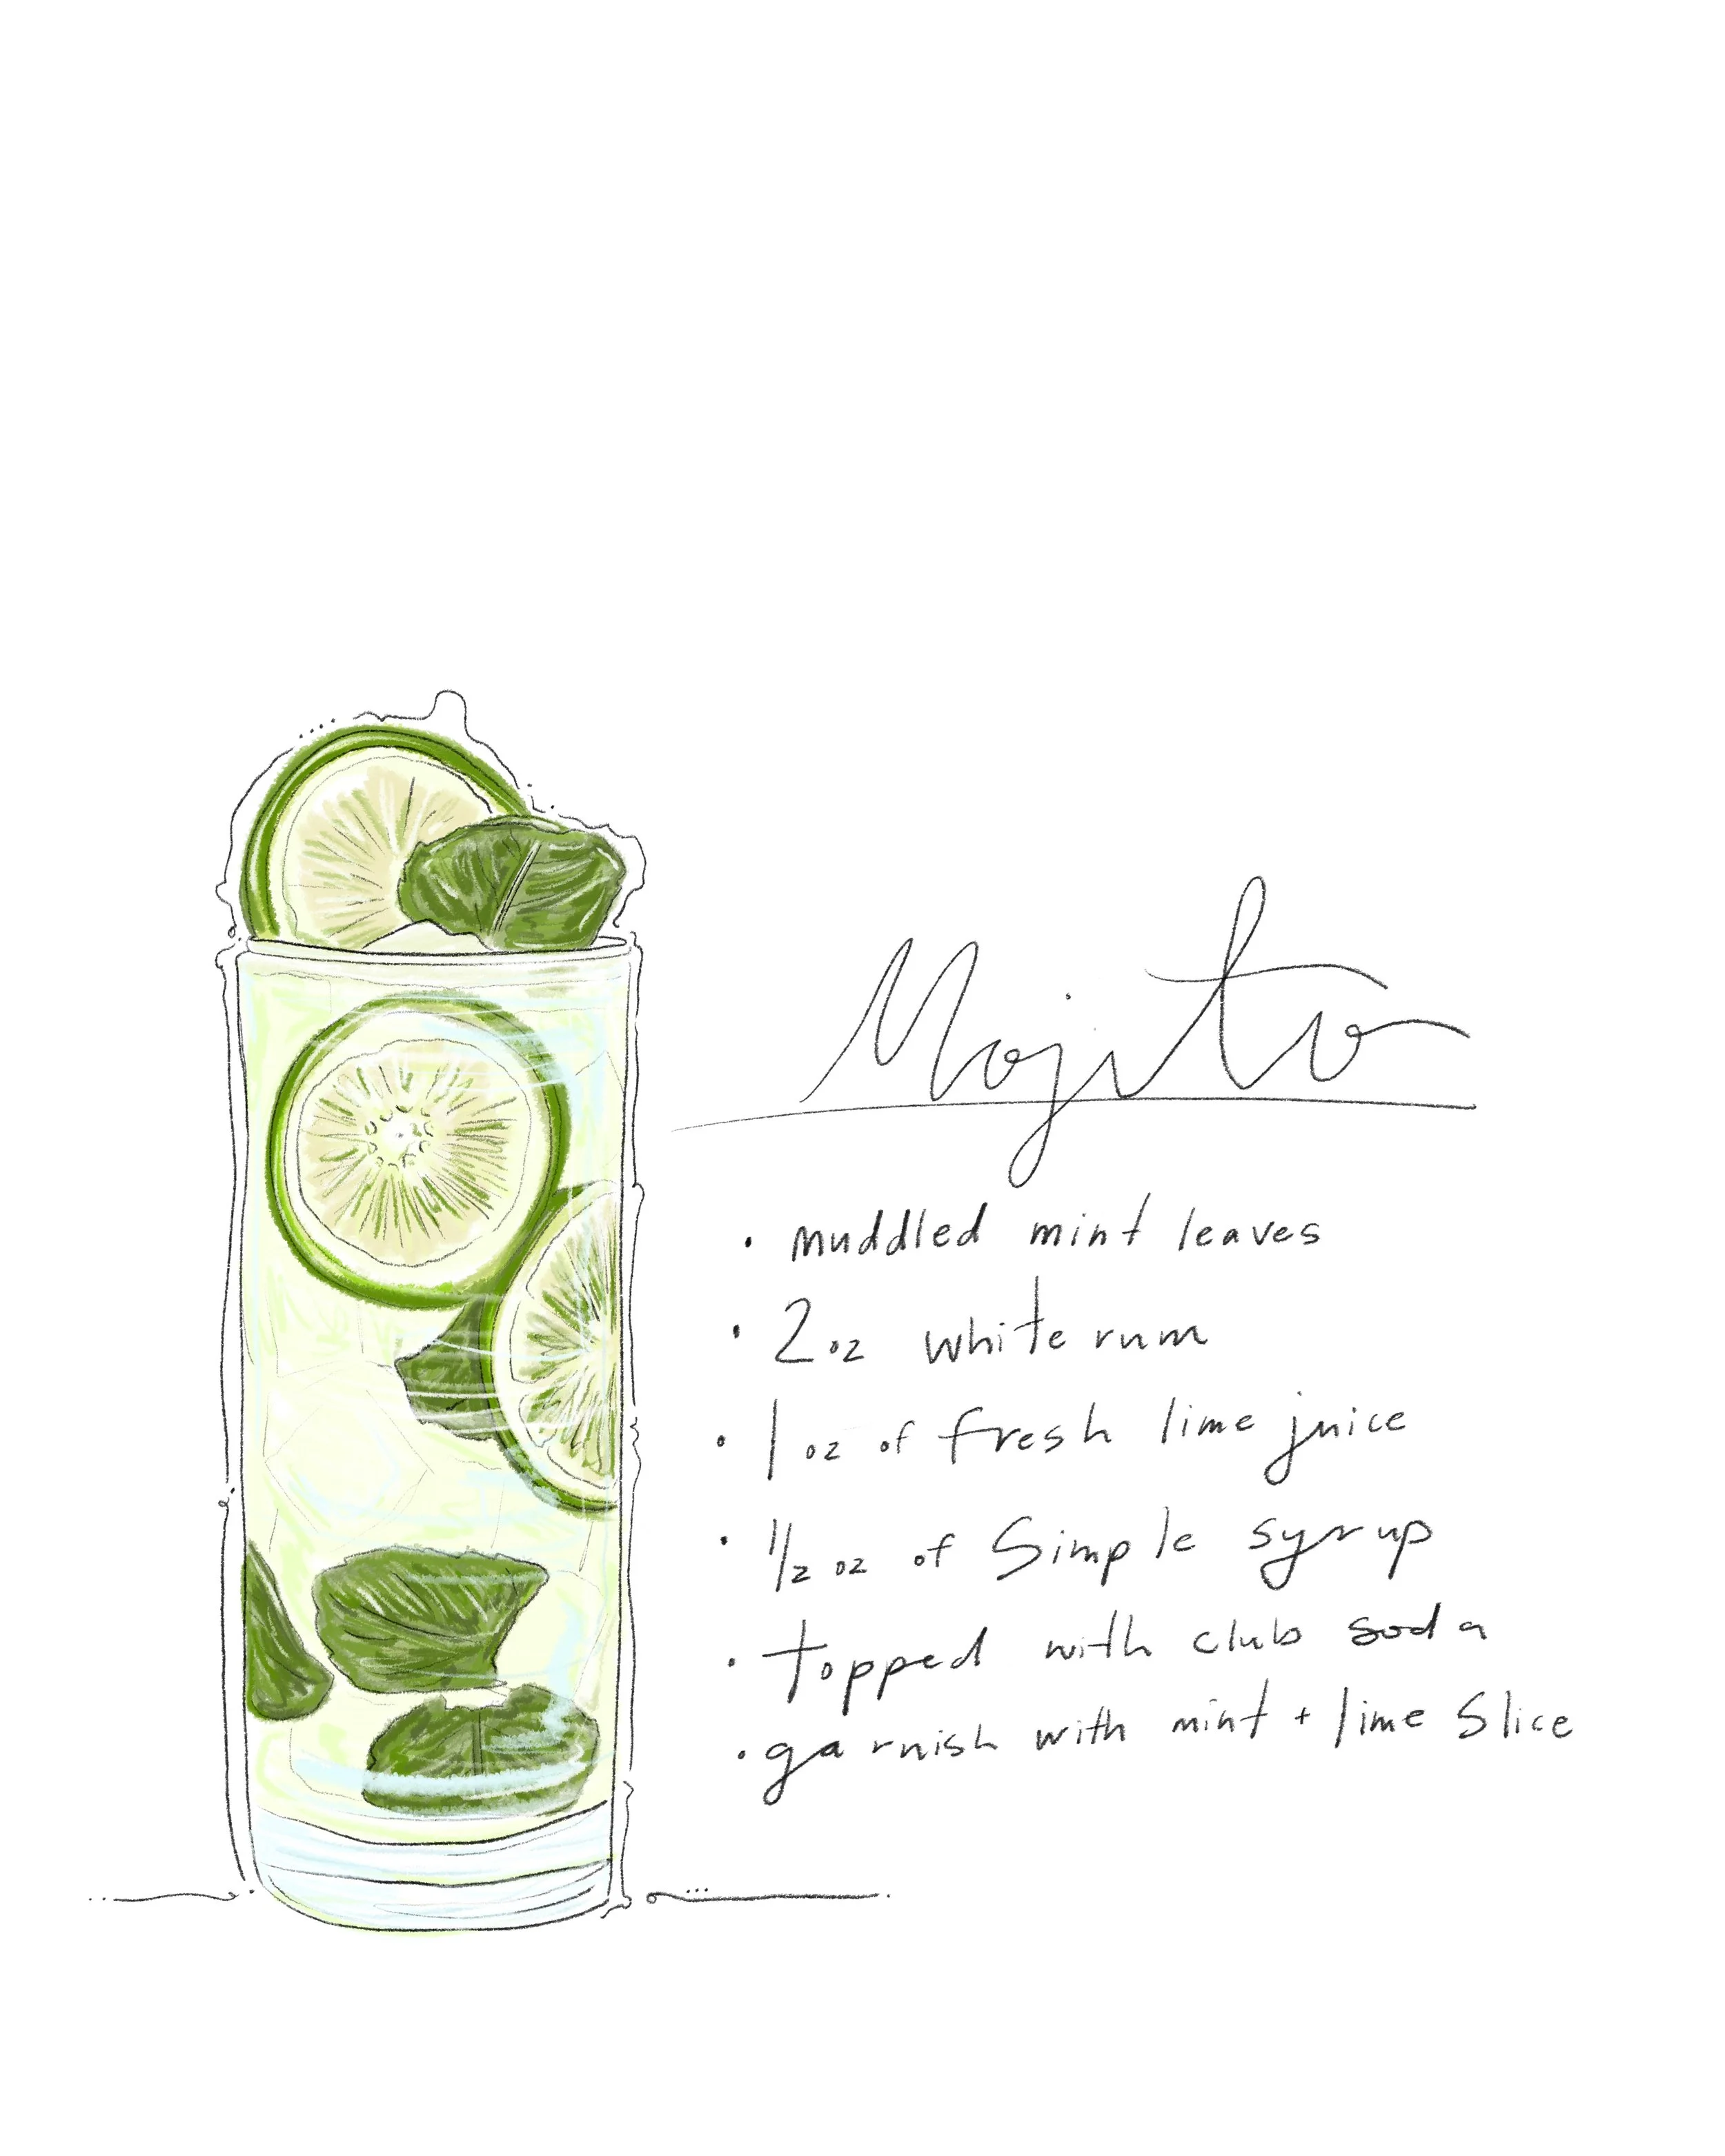 Mojito
• muddled mint leaves
• 2 oz white rum
• 1 oz of fresh lime juice
• 1/2 oz of Simple syrup
• topped with club soda
• garnish with mint + lime Slice